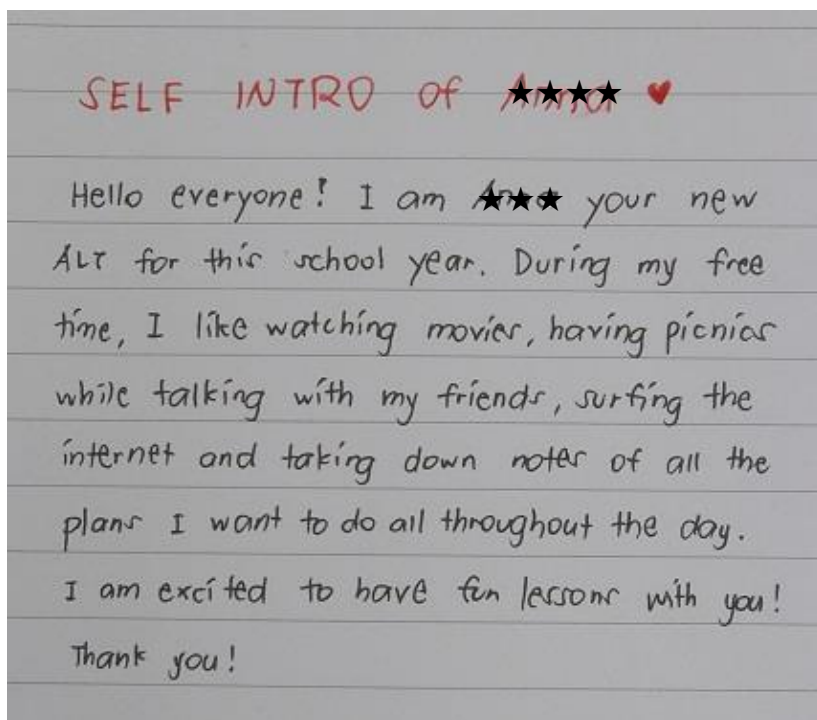 SELF INTRO of ★★★★ ♥
Hello everyone! I am ★★★ your new
ALT for this school year. During my free
time, I like watching movies, having picnics
while talking with my friends, surfing the
internet and taking down notes of all the
plans I want to do all throughout the day.
I am excited to have fun lessons with you!
Thank you!